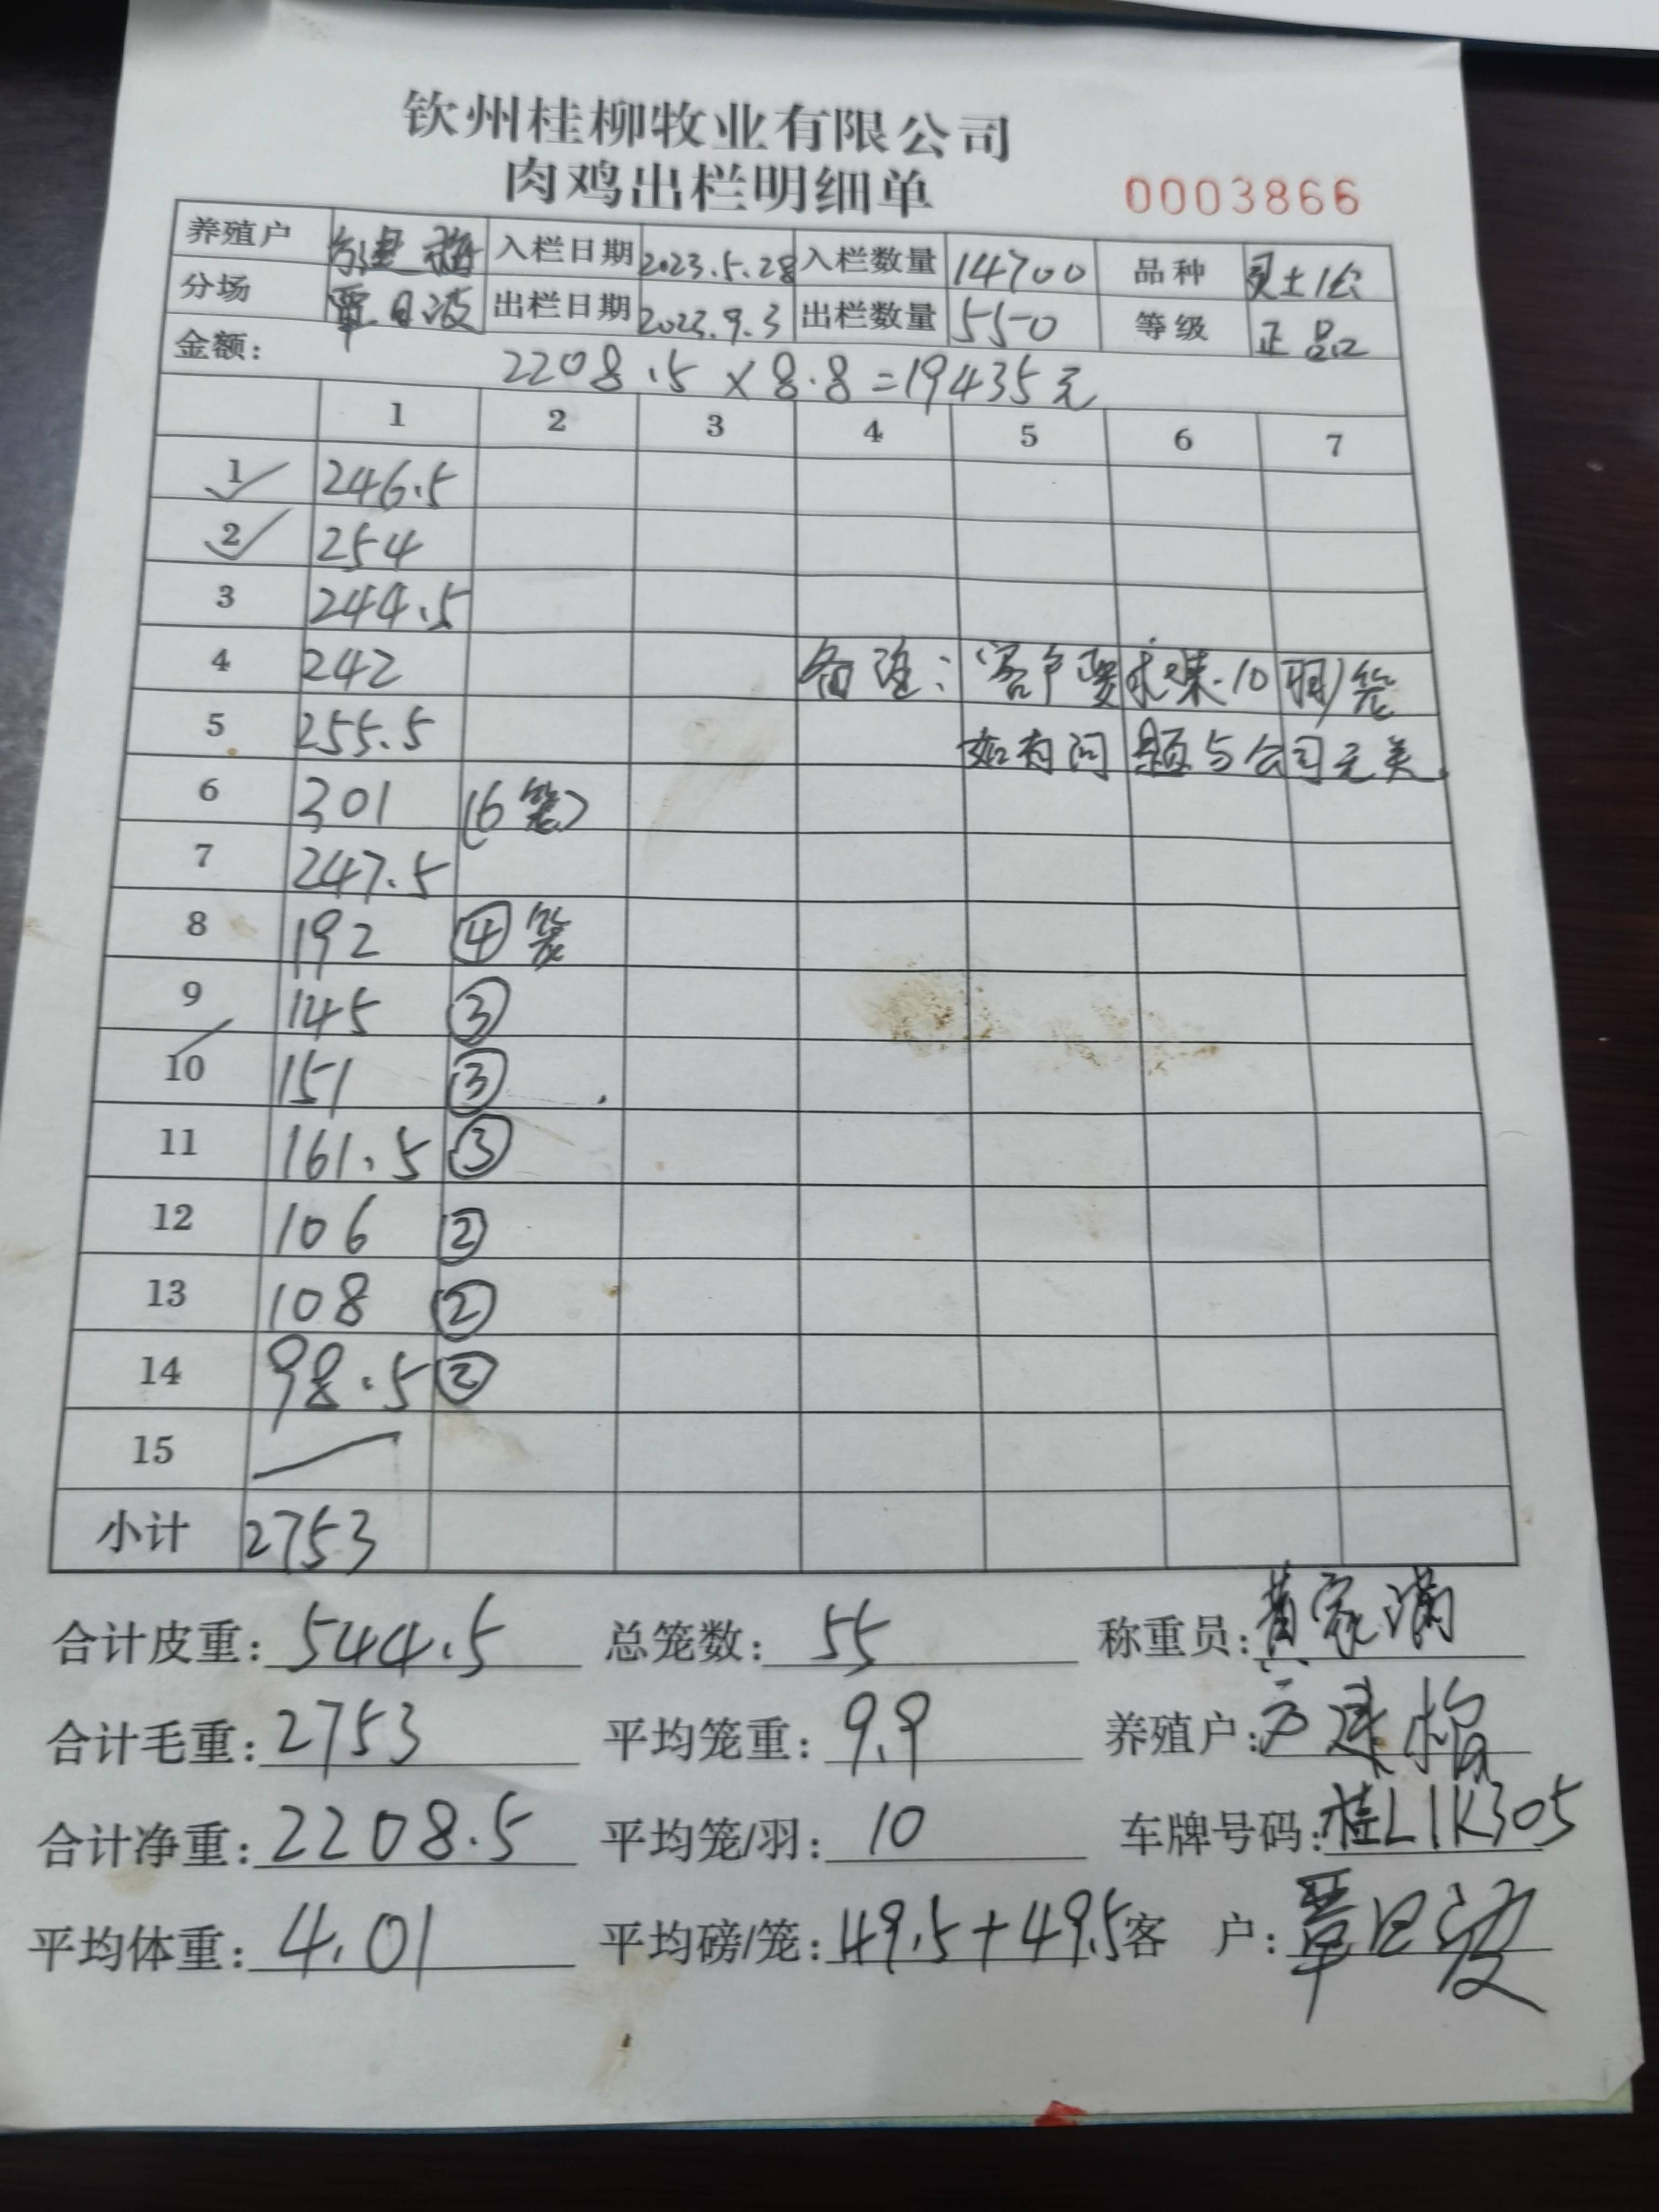 钦州桂柳牧业有限公司
肉鸡出栏明细单 0003866
养殖户 入栏日期 2023.5.28 入栏数量 14700 品种 灵土1公
分场 覃日波 出栏日期 2023.9.3 出栏数量 550 等级 正品
金额: 2208.5×8.8=19435元
1 2 3 4 5 6 7
1 246.5
2 254
3 244.5
4 242 备注:客户要求装10羽/笼
5 255.5 如有问题与公司无关.
6 301 (6笼)
7 247.5
8 192 ④笼
9 145 ③
10 151 ③
11 161.5 ③
12 106 ②
13 108 ②
14 98.5 ②
15
小计 2753
合计皮重: 544.5 总笼数: 55 称重员: 黄家满
合计毛重: 2753 平均笼重: 9.9 养殖户:
合计净重: 2208.5 平均笼/羽: 10 车牌号码: 桂L1K305
平均体重: 4.01 平均磅/笼: 49.5+49.5 客 户: 覃日波